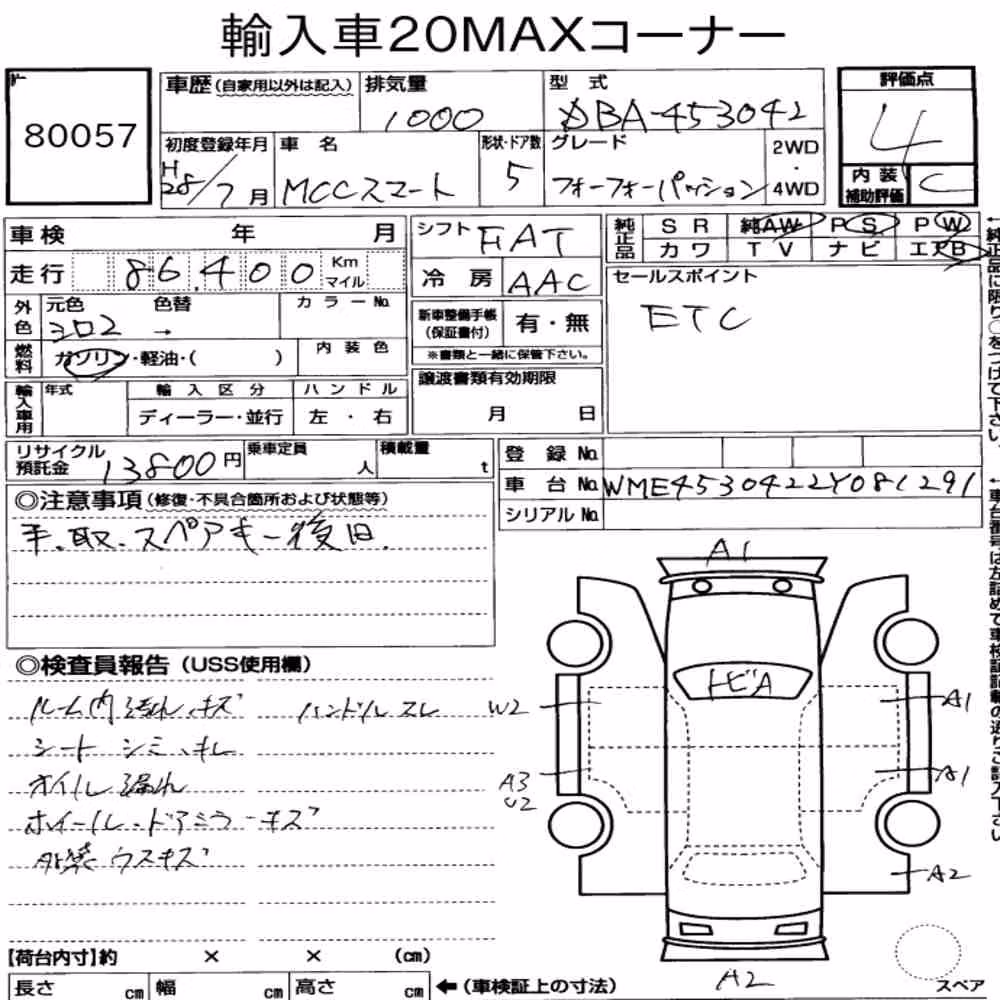 輸入車20MAXコーナー
80057
車歴(自家用以外は記入) 排気量 1000 型式 DBA-453042
評価点 4
初度登録年月 H28/7月 車名 MCCスマート 形状・ドア数 5 グレード フォーフォーパッション 2WD・4WD
内装補助評価 C
車検 年 月
シフト FAT
純正品 SR 純AW PS PW
カワ TV ナビ エアB
走行 86,400 Km マイル
冷房 AAC
セールスポイント
ETC
外色 元色 シロ2 色替 → カラーNo.
新車整備手帳(保証書付) 有・無
※書類と一緒に保管下さい。
燃料 ガソリン・軽油・( ) 内装色
譲渡書類有効期限
月 日
輸入車用 年式 輸入区分 ハンドル
ディーラー・並行 左・右
リサイクル預託金 13800円 乗車定員 人 積載量 t
登録No.
車台No. WME4530422Y081291
シリアルNo.
◎注意事項(修復・不具合箇所および状態等)
手、取、スペアキー後日
◎検査員報告(USS使用欄)
ルーム内 汚れ、キズ ハンドルスレ
シート シミ、キレ
オイル漏れ
ホイール、ドアミラーキズ
外装ウスキズ
A1
トビA
W2
A1
A3
U2
A1
A2
A2
スペア
【荷台内寸】約 × × (cm)
長さ cm 幅 cm 高さ cm ←(車検証上の寸法)
←純正品に限り○をつけて下さい。